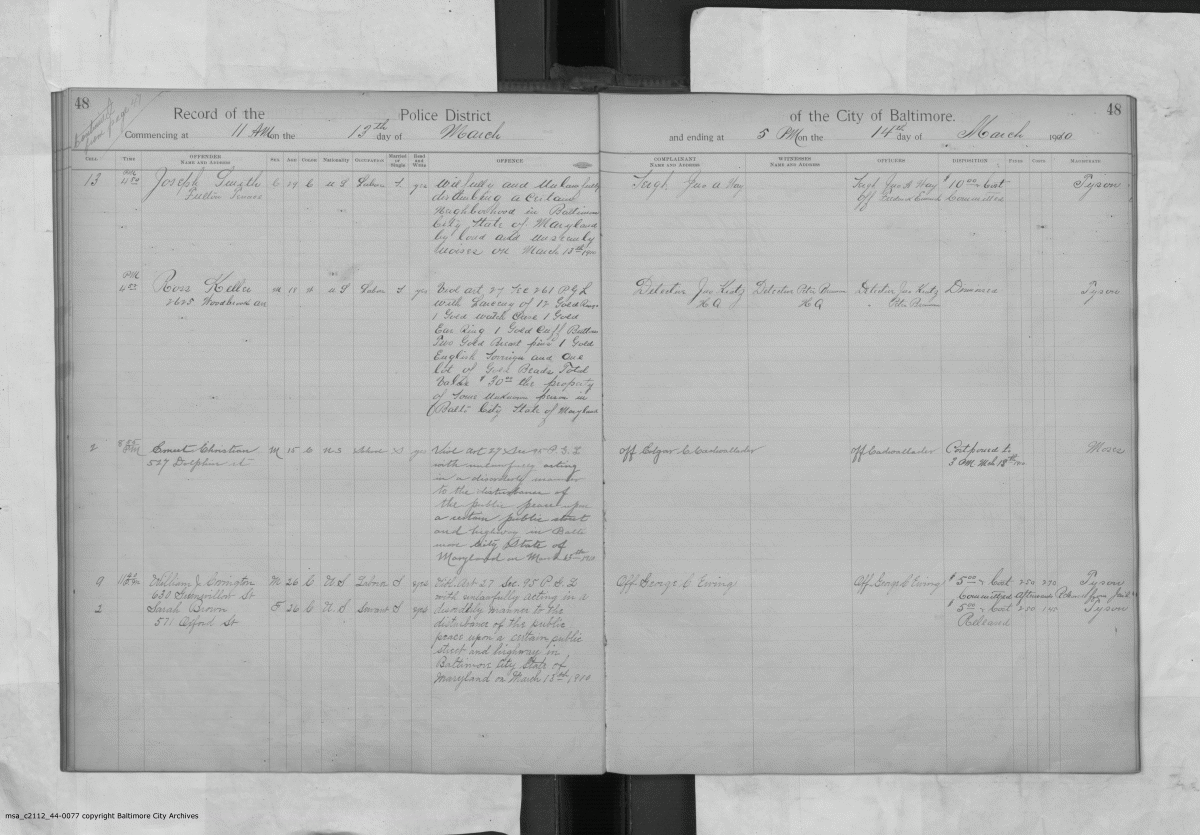 48
Record of the Police District
Commencing at 11 AM on the 13th day of March
CELL TIME OFFENDER NAME AND ADDRESS SEX AGE COLOR Nationality OCCUPATION Married or Single Read and Write OFFENCE
13 Joseph Smith C 19 C U S Labor S yes Wilfully and Unlawfully
disturbing a certain
Neighborhood in Baltimore
City State of Maryland
by loud and unseemly
Noises on March 13th 1910
PM 4 00 Ross Keller 18 U S Labor S yes Viol art 27 Sec 261 P G L
2625 Woodbrook av with Larceny of 12 Gold Rings
1 Gold watch Case 1 Gold
Ear Ring 1 Gold Cuff Button
Two Gold Breast pins 1 Gold
English and One
lot of Gold Beads Total
Value $30 00 the property
of Some unknown person in
Balto City State of Maryland
2 5 55 PM Ernest Christian M 15 C U S Labor S yes Viol Art 27 Sec 95 P. G. L
527 Dolphin st with unlawfully acting
in a disorderly manner
to the disturbance of
the public peace upon
a certain public street
and highway in Balti
more City State of
Maryland on March 13th 1910
9 William J. Covington M 26 C U S Laborer S yes Viol. Art 27 Sec. 95 P. G. L
630 St with unlawfully acting in a
2 Sarah Brown F 26 C U S Servant S yes disorderly manner to the
571 Oxford St disturbance of the public
peace upon a certain public
street and highway in
Baltimore City State of
Maryland on March 13th 1910
48
of the City of Baltimore.
and ending at 5 PM on the 14th day of March 1910
COMPLAINANT NAME AND ADDRESS WITNESSES NAME AND ADDRESS OFFICERS DISPOSITION FINES COSTS MAGISTRATE
Sergt Jno A Hay Sergt Jno A Hay $10 00 & Cost Tyson
Off Committed
Detective Jno Kratz Detective Peter Detective Jno Kratz Dismissed Tyson
H Q H Q " Peter
Off Edgar C Cadwallader Off Cadwallader Postponed to Moses
3 PM Mch 18th 1910
Off George C. Ewing Off George C Ewing $5 00 & Cost Tyson
Committed Afterwards from Jail
$5 00 & Cost Tyson
Released
msa_c2112_44-0077 copyright Baltimore City Archives